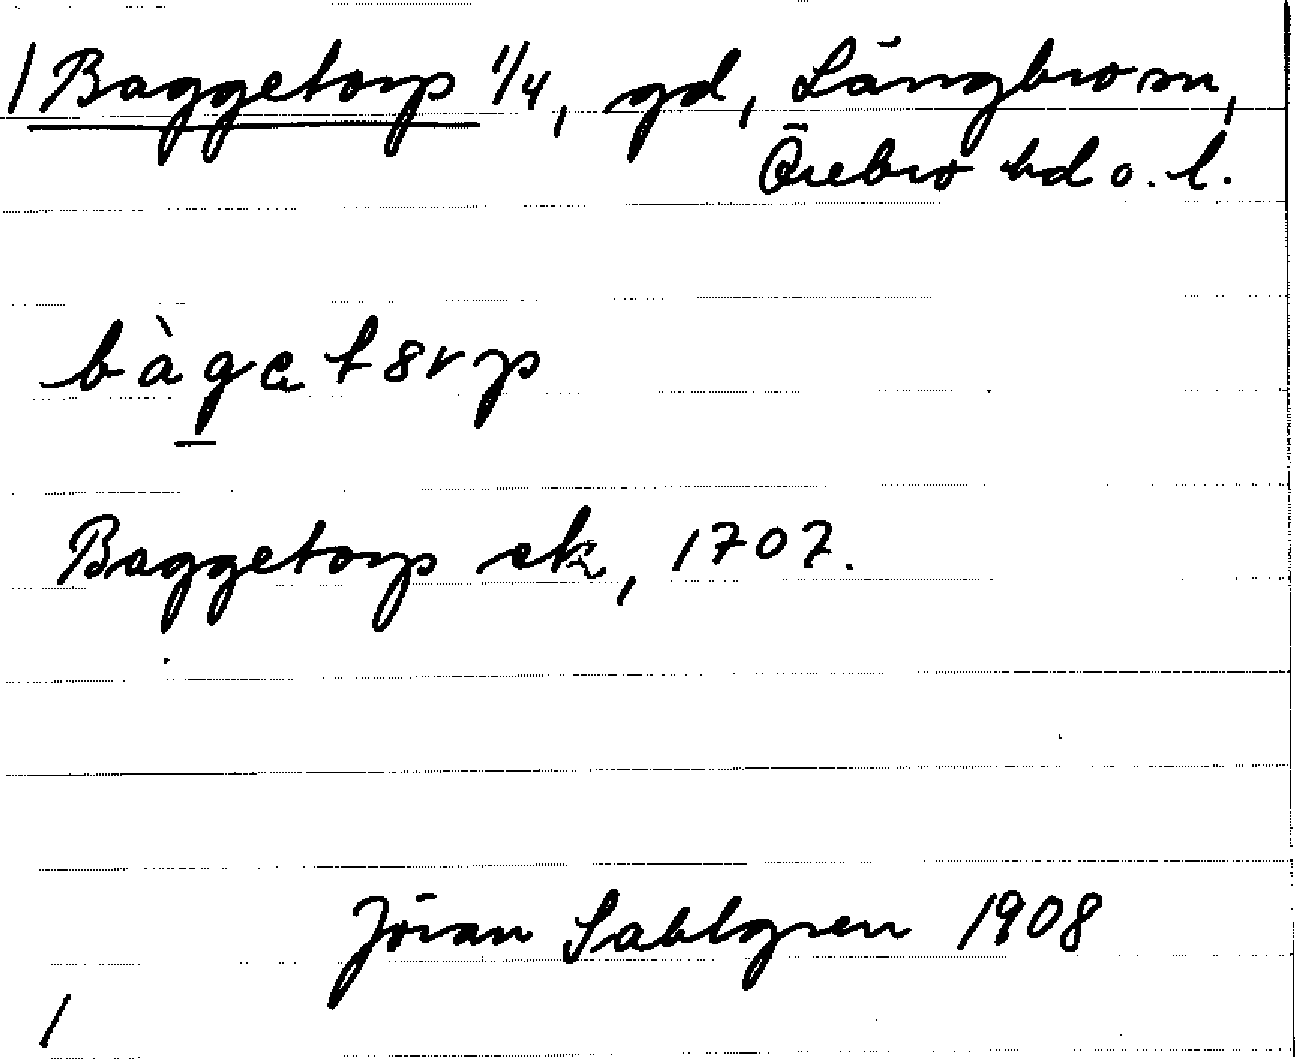 1 Baggetorp 1/4, gd, Längbro sn,
Örebro hd o. l.
bàgetorp
Baggetorp sk, 1707.
Jöran Sahlgren 1908
1